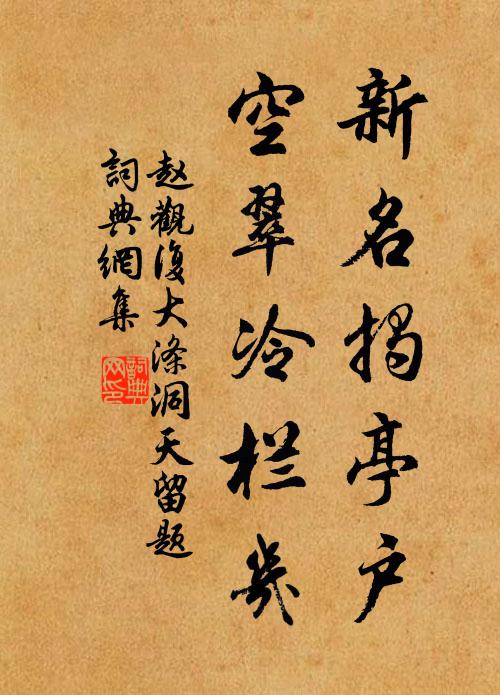 新名揭亭户
空翠冷栏幾
赵觀復大滌洞天留题
詞典網集
詞典網印